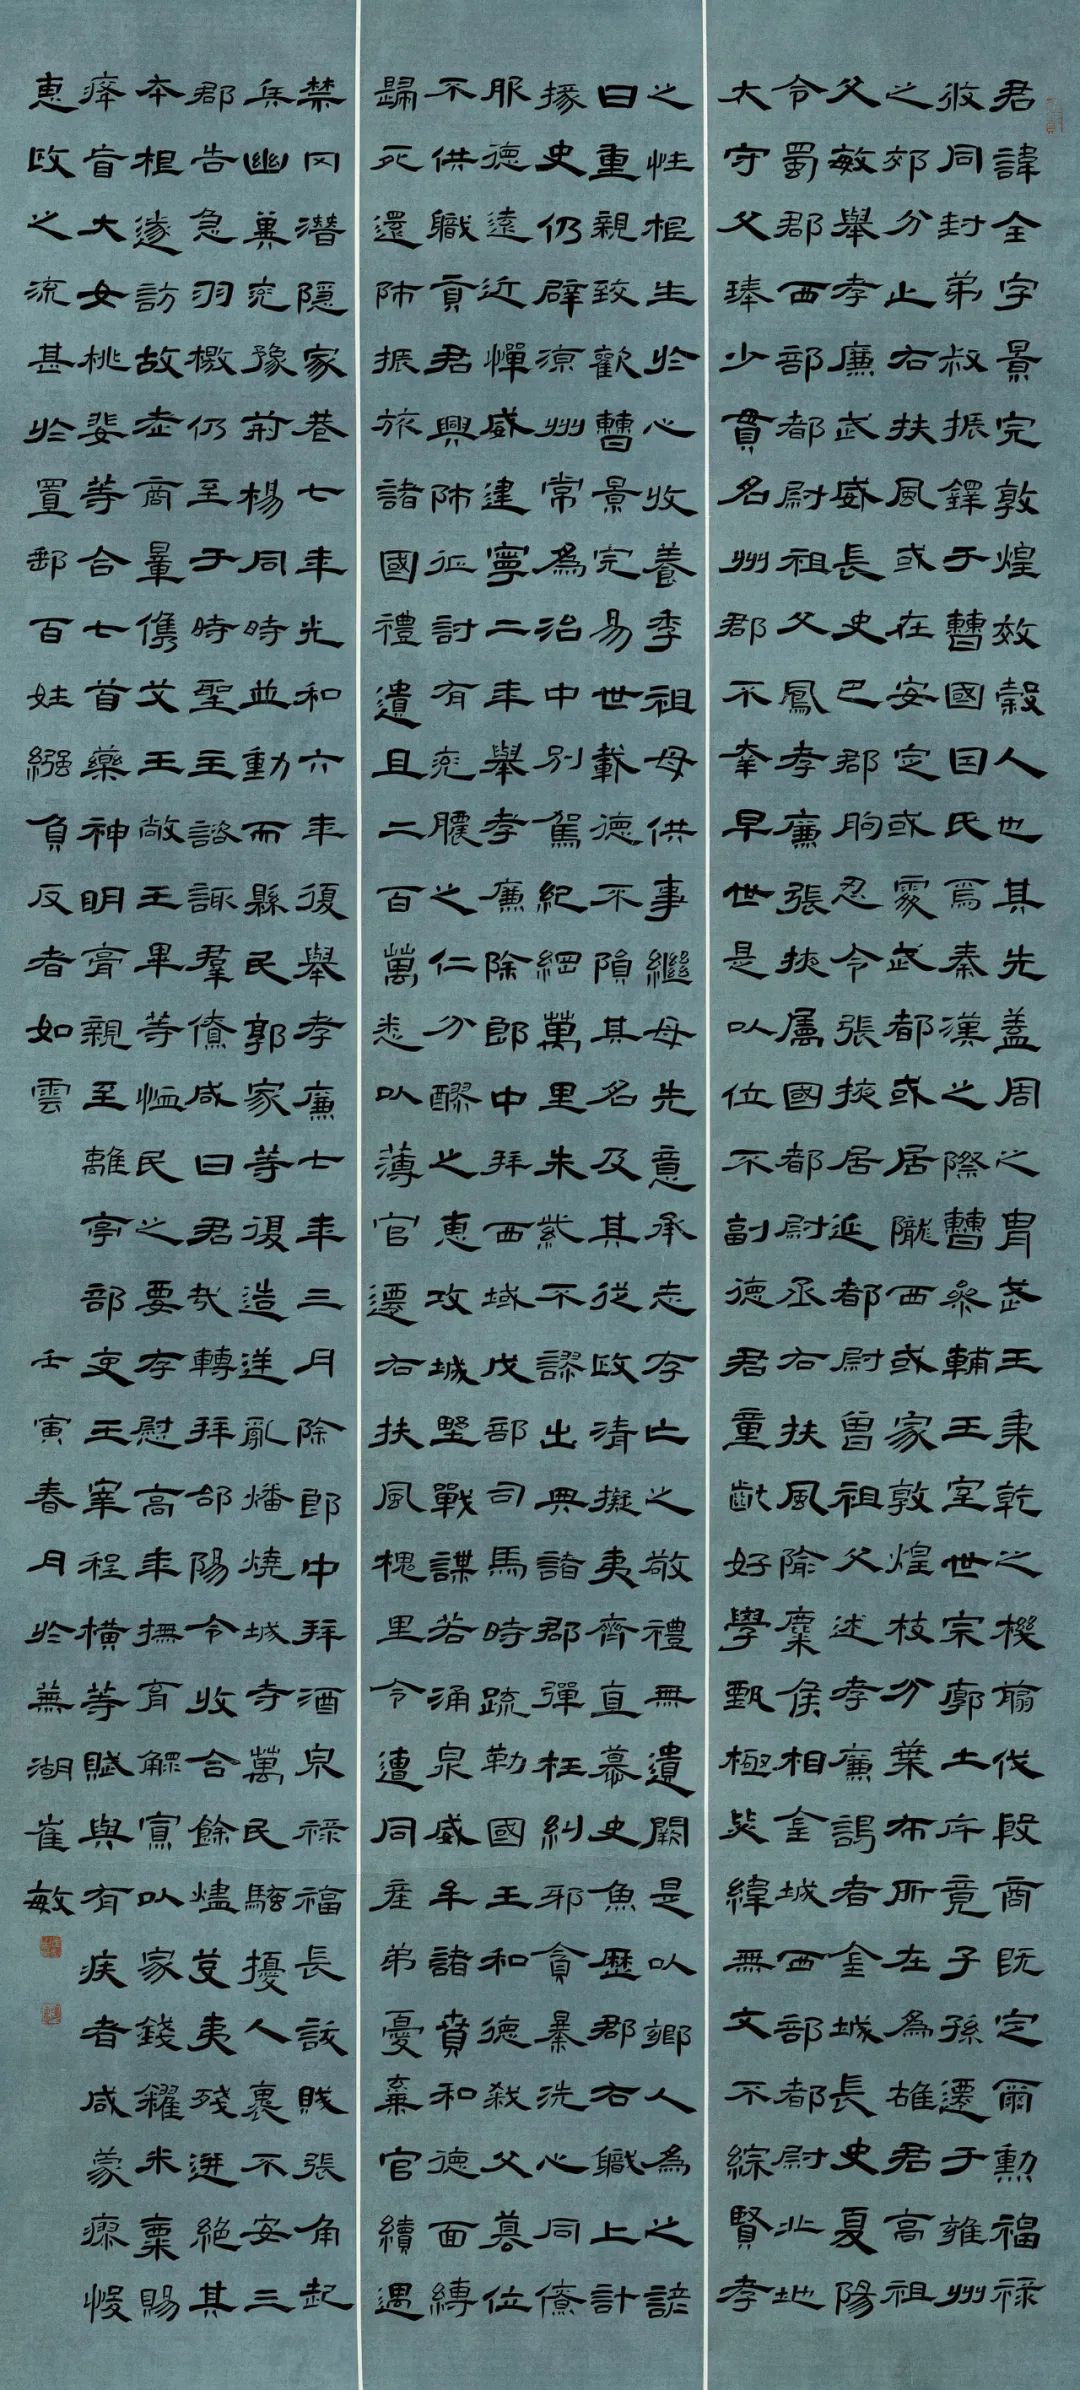 君諱全字景完敦煌效穀人也其先蓋周之胄武王秉乾之機翦伐殷商既定爾勳福祿
攸同封弟叔振鐸于曹國因氏焉秦漢之際曹參輔王室世宗廓土斥竟子孫遷于雍州
之郊分止右扶風或在安定或處武都或居隴西或家敦煌枝分葉布所在為雄君高祖
父敏舉孝廉武威長史巴郡朐忍令張掖居延都尉曾祖父述孝廉謁者金城長史夏陽
令蜀郡西部都尉祖父鳳孝廉張掖属國都尉丞右扶風隃麋侯相金城西部都尉北地
大守父琫少貫名州郡不幸早世是以位不副德君童齔好學甄極毖緯無文不綜賢孝
之性根生於心收養季祖母供事繼母先意承志存亡之敬禮無遺闕是以鄉人為之諺
曰重親致歡曹景完易世載德不隕其名及其從政清擬夷齊直慕史魚歷郡右職上計
掾史仍辟涼州常為治中別駕紀綱萬里朱紫不謬出典諸郡彈枉糾邪貪暴洗心同僚
服德遠近憚威建寧二年舉孝廉除郎中拜西域戊部司馬時疏勒國王和德弒父篡位
不供職貢君興師征討有兗膿之仁分醪之惠攻城野戰謀若涌泉威牟諸賁和德面縛
歸死還師振旅諸國禮遺且二百萬悉以薄官遷右扶風槐里令遭同產弟憂棄官續遇
禁冈潛隱家巷七年光和六年復舉孝廉七年三月除郎中拜酒泉祿福長訞賊張角起
兵幽冀兗豫荊楊同時並動而縣民郭家等復造逆亂燔燒城寺萬民騷擾人裹不安三
郡告急羽檄仍至于時聖主諮諏羣僚咸曰君哉轉拜郃陽令收合餘燼芟夷殘迸絕其
本根遂訪故老商暈儁艾王敞王畢等恤民之要存慰高年撫育鰥寡以家錢糴米粟賜
瘴盲大女桃婓等合七首藥神明膏親至離亭部吏王宰程橫等賦與有疾者咸蒙瘳悛
惠政之流甚於置郵百姓繦負反者如雲
壬寅春月於蕪湖崔敏